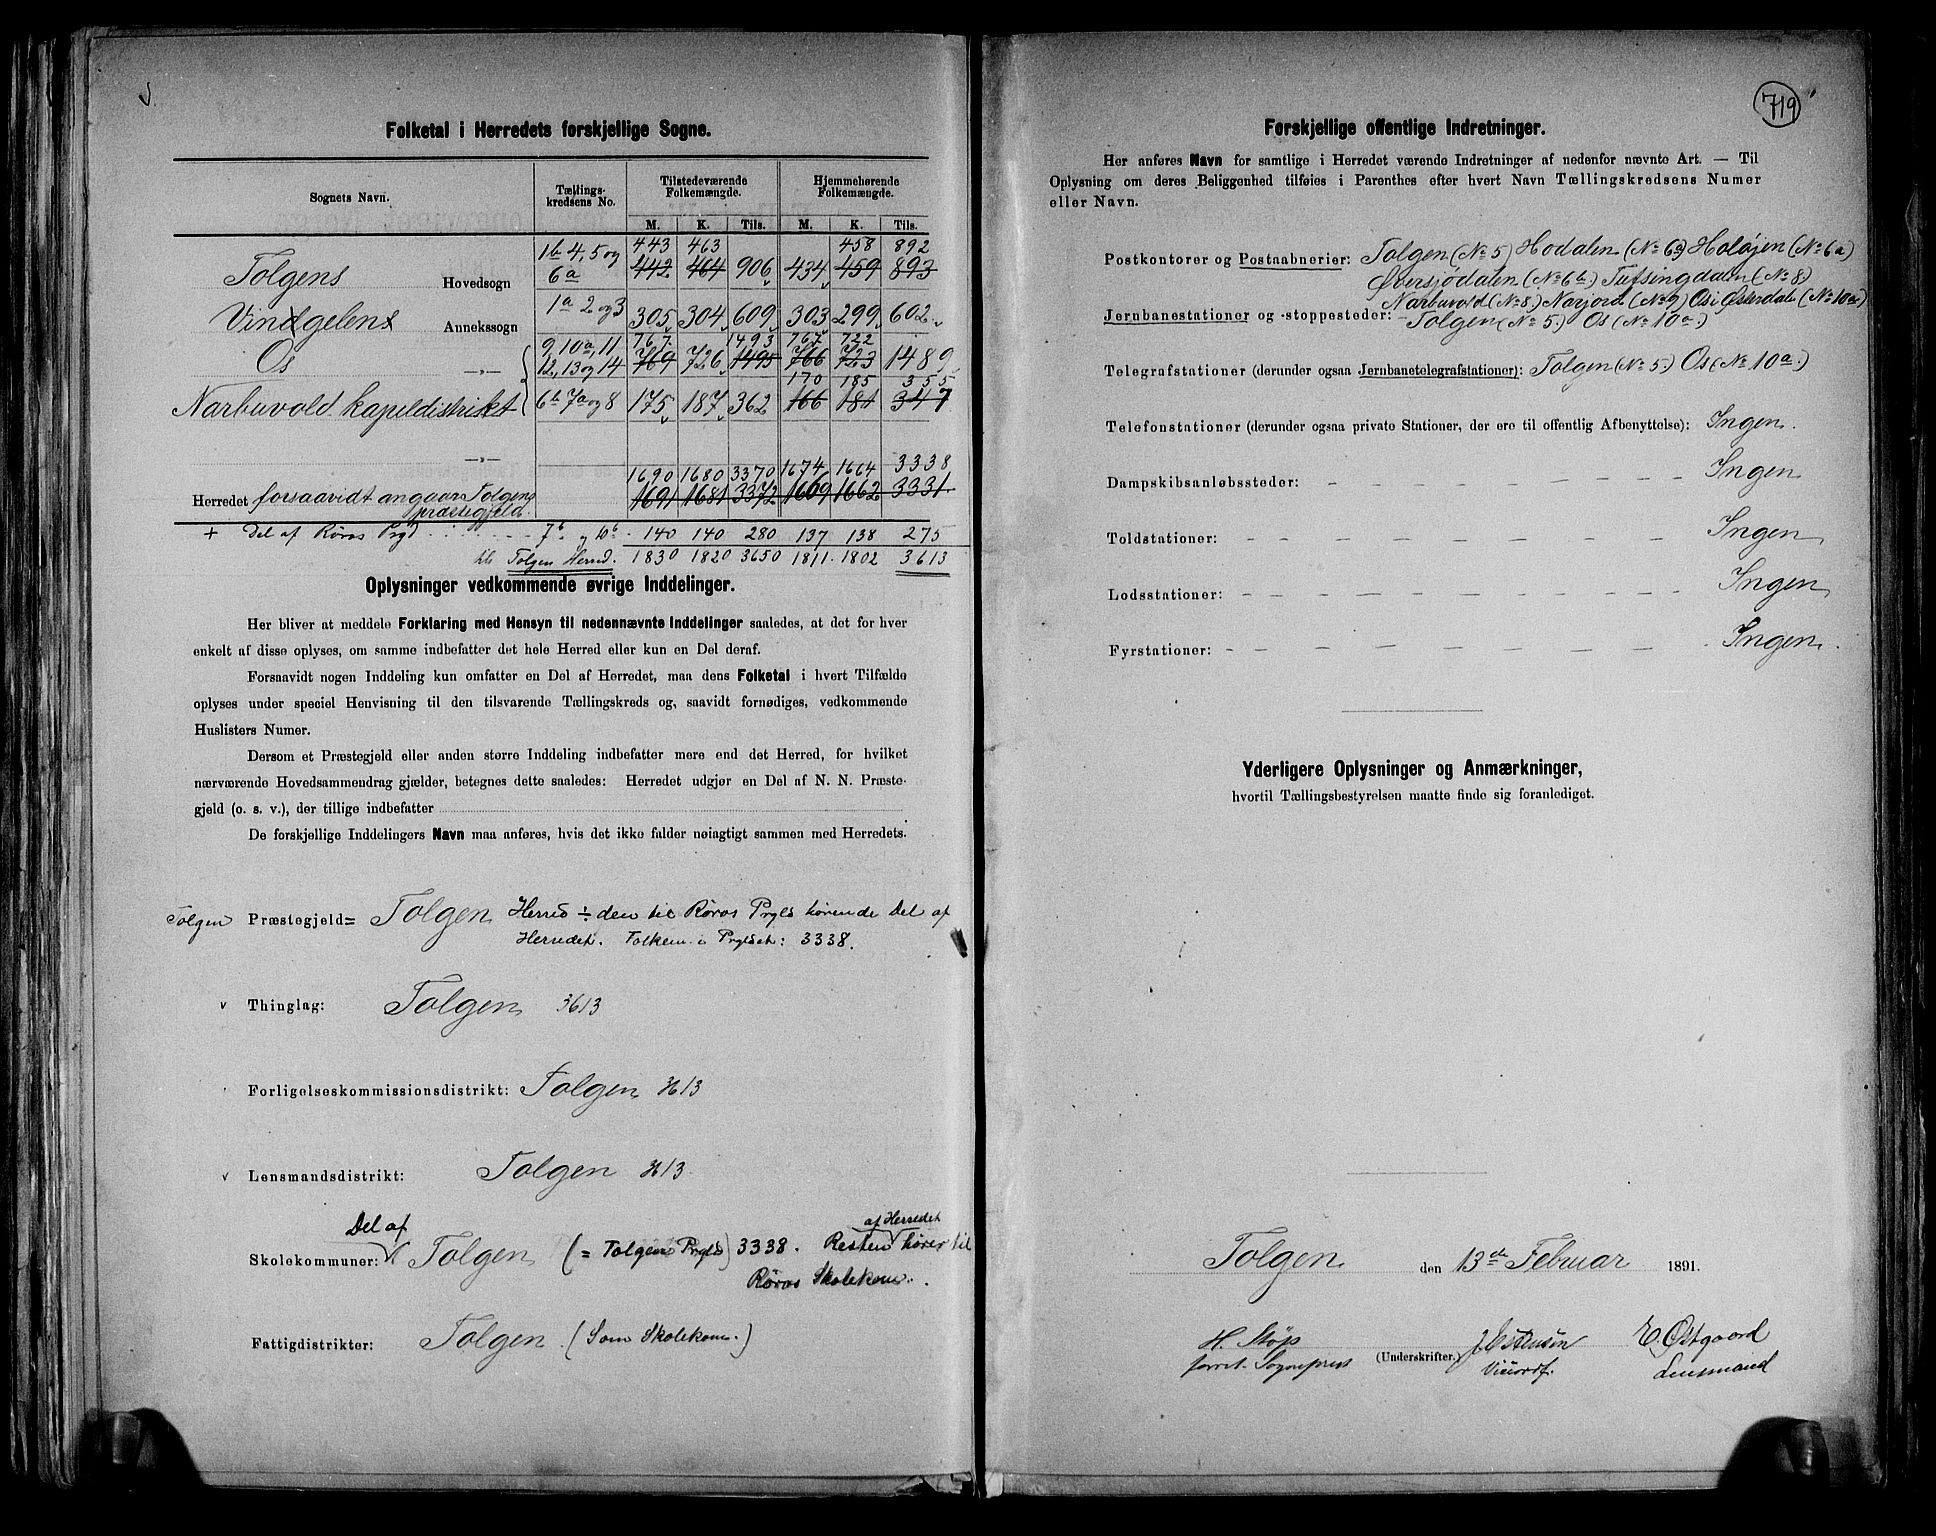 Folketal i Herredets forskjellige Sogne.
Sognets Navn. Tællings-kredsens No. Tilstedeværende Folkemængde. Hjemmehørende Folkemængde.
M. K. Tils. M. K. Tils.
1b 4, 5 og 443 463 458 892
Tolgens Hovedsogn 6a 442 464 906 434 459 893
Vindgelens Annekssogn 1a 2 og 3 305 304 609 303 299 602
9, 10a, 11 767 1493 767 722
Os —„— 12, 13 og 14 769 726 1495 766 723 1489
170 185 355
Narbuvold kapeldistrikt 6b 7a og 8 175 187 362 166 181 347
—„—
1690 1680 3370 1674 1664 3338
Herredet forsaavidt angaar Tolgens præstegjeld. 1691 1681 3372 1669 1662 3331
+ Del af Røros Prgd 7b og 10b 140 140 280 137 138 275
Tolgen Herred. 1830 1820 3650 1811 1802 3613
Oplysninger vedkommende øvrige Inddelinger.
Her bliver at meddele Forklaring med Hensyn til nedennævnte Inddelinger saaledes, at det for hver
enkelt af disse oplyses, om samme indbefatter det hele Herred eller kun en Del deraf.
Forsaavidt nogen Inddeling kun omfatter en Del af Herredet, maa dens Folketal i hvert Tilfælde
oplyses under speciel Henvisning til den tilsvarende Tællingskreds og, saavidt fornødiges, vedkommende
Huslisters Numer.
Dersom et Præstegjeld eller anden større Inddeling indbefatter mere end det Herred, for hvilket
nærværende Hovedsammendrag gjælder, betegnes dette saaledes: Herredet udgjør en Del af N. N. Præste-
gjeld (o. s. v.), der tillige indbefatter
De forskjellige Inddelingers Navn maa anføres, hvis det ikke falder nøiagtigt sammen med Herredets.
Tolgen Præstegjeld = Tolgen Herred ÷ den til Røros Prgls hørende Del af
Herredet. Folkem. i Prgldet: 3338.
v Thinglag: Tolgen 3613
Forligelseskommissionsdistrikt: Tolgen 3613
v Lensmandsdistrikt: Tolgen 3613
Del af af Herredet
Skolekommuner: Tolgen (= Tolgen Prgld) 3338. Resten hører til
Røros Skolekom.
Fattigdistrikter: Tolgen (Som Skolekom.)
719
Forskjellige offentlige Indretninger.
Her anføres Navn for samtlige i Herredet værende Indretninger af nedenfor nævnte Art. — Til
Oplysning om deres Beliggenhed tilføies i Parenthes efter hvert Navn Tællingskredsens Numer
eller Navn.
Postkontorer og Postaabnerier: Tolgen (No 5) Hodalen (No 6a) Holøjen (No 6a)
Øversjødalen (No 6b) Tufsingdalen (No 8)
Narbuvold (No 8) Narjord (No 9) Os i Østerdalen (No 10a)
Jernbanestationer og -stoppesteder: Tolgen (No 5.) Os (No 10a.)
Telegrafstationer (derunder ogsaa Jernbanetelegrafstationer): Tolgen (No 5.) Os (No 10a.)
Telefonstationer (derunder ogsaa private Stationer, der ere til offentlig Afbenyttelse): Ingen.
Dampskibsanløbssteder: Ingen
Toldstationer: Ingen
Lodsstationer: Ingen
Fyrstationer: Ingen.
Yderligere Oplysninger og Anmærkninger,
hvortil Tællingsbestyrelsen maatte finde sig foranlediget.
Tolgen den 13de Februar 1891.
H. Støp E. Østgaard
(Underskrifter.)
Sogneprest Viceordf. Lensmand